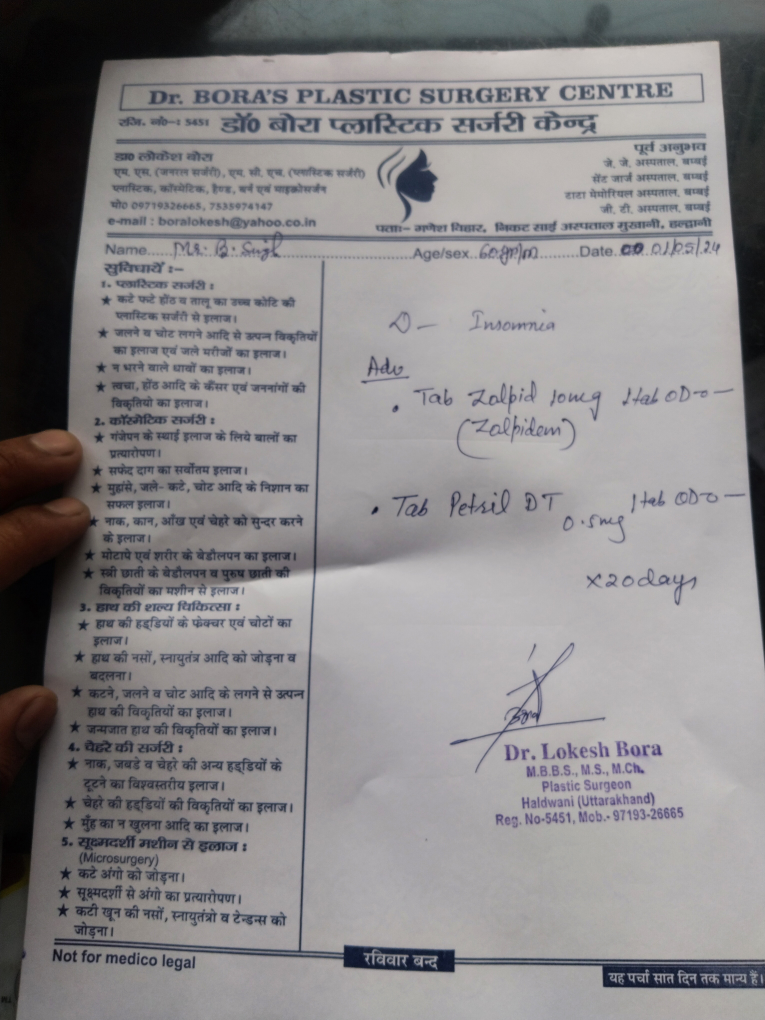 Dr. BORA'S PLASTIC SURGERY CENTRE
रजि. नं०-: 5451 डॉ0 बोरा प्लास्टिक सर्जरी केन्द्र
डा० लोकेश बोरा
एम. एस. (जनरल सर्जरी), एम. सी. एच. (प्लास्टिक सर्जरी)
प्लास्टिक, कॉस्मेटिक, हैण्ड, बर्न एवं माइक्रोसर्जन
मो0 09719326665, 7535974147
e-mail : boralokesh@yahoo.co.in
पूर्व अनुभव
जे. जे. अस्पताल, बम्बई
सेंट जार्ज अस्पताल, बम्बई
टाटा मेमोरियल अस्पताल, बम्बई
जी. टी. अस्पताल, बम्बई
पताः- गणेश विहार, निकट साई अस्पताल मुखानी, हल्द्वानी
Name..... Mr. B. Singh ..... Age/sex 60yr/m ..... Date. 01/05/24
सुविधायें :-
1. प्लास्टिक सर्जरी :
★ कटे फटे होंठ व तालू का उच्च कोटि की
प्लास्टिक सर्जरी से इलाज।
★ जलने व चोट लगने आदि से उत्पन्न विकृतियों
का इलाज एवं जले मरीजों का इलाज।
★ न भरने वाले घावों का इलाज।
★ त्वचा, होंठ आदि के कैंसर एवं जननांगों की
विकृतियो का इलाज।
2. कॉस्मेटिक सर्जरी :
★ गंजेपन के स्थाई इलाज के लिये बालों का
प्रत्यारोपण।
★ सफेद दाग का सर्वोतम इलाज।
★ मुहांसे, जले- कटे, चोट आदि के निशान का
सफल इलाज।
★ नाक, कान, आँख एवं चेहरे को सुन्दर करने
के इलाज।
★ मोटापे एवं शरीर के बेडौलपन का इलाज।
★ स्त्री छाती के बेडौलपन व पुरुष छाती की
विकृतियों का मशीन से इलाज।
3. हाथ की शल्य चिकित्सा :
★ हाथ की हड्डियों के फेक्चर एवं चोटों का
इलाज।
★ हाथ की नसों, स्नायुतंत्र आदि को जोड़ना व
बदलना।
★ कटने, जलने व चोट आदि के लगने से उत्पन्न
हाथ की विकृतियों का इलाज।
★ जन्मजात हाथ की विकृतियों का इलाज।
4. चेहरे की सर्जरी :
★ नाक, जबडे व चेहरे की अन्य हड्डियों के
टूटने का विश्वस्तरीय इलाज।
★ चेहरे की हड्डियों की विकृतियों का इलाज।
★ मुँह का न खुलना आदि का इलाज।
5. सूक्ष्मदर्शी मशीन से इलाज :
(Microsurgery)
★ कटे अंगो को जोड़ना।
★ सूक्ष्मदर्शी से अंगो का प्रत्यारोपण।
★ कटी खून की नसों, स्नायुतंत्रो व टेन्डन्स को
जोड़ना।
D- Insomnia
Adv
• Tab Zolpid 10mg 1tab OD-o-
(Zolpidem)
• Tab Petril DT 0.5mg 1tab OD-o-
x20days
Bora
Dr. Lokesh Bora
M.B.B.S., M.S., M.Ch.
Plastic Surgeon
Haldwani (Uttarakhand)
Reg. No-5451, Mob.- 97193-26665
Not for medico legal
रविवार बन्द
यह पर्चा सात दिन तक मान्य हैं।